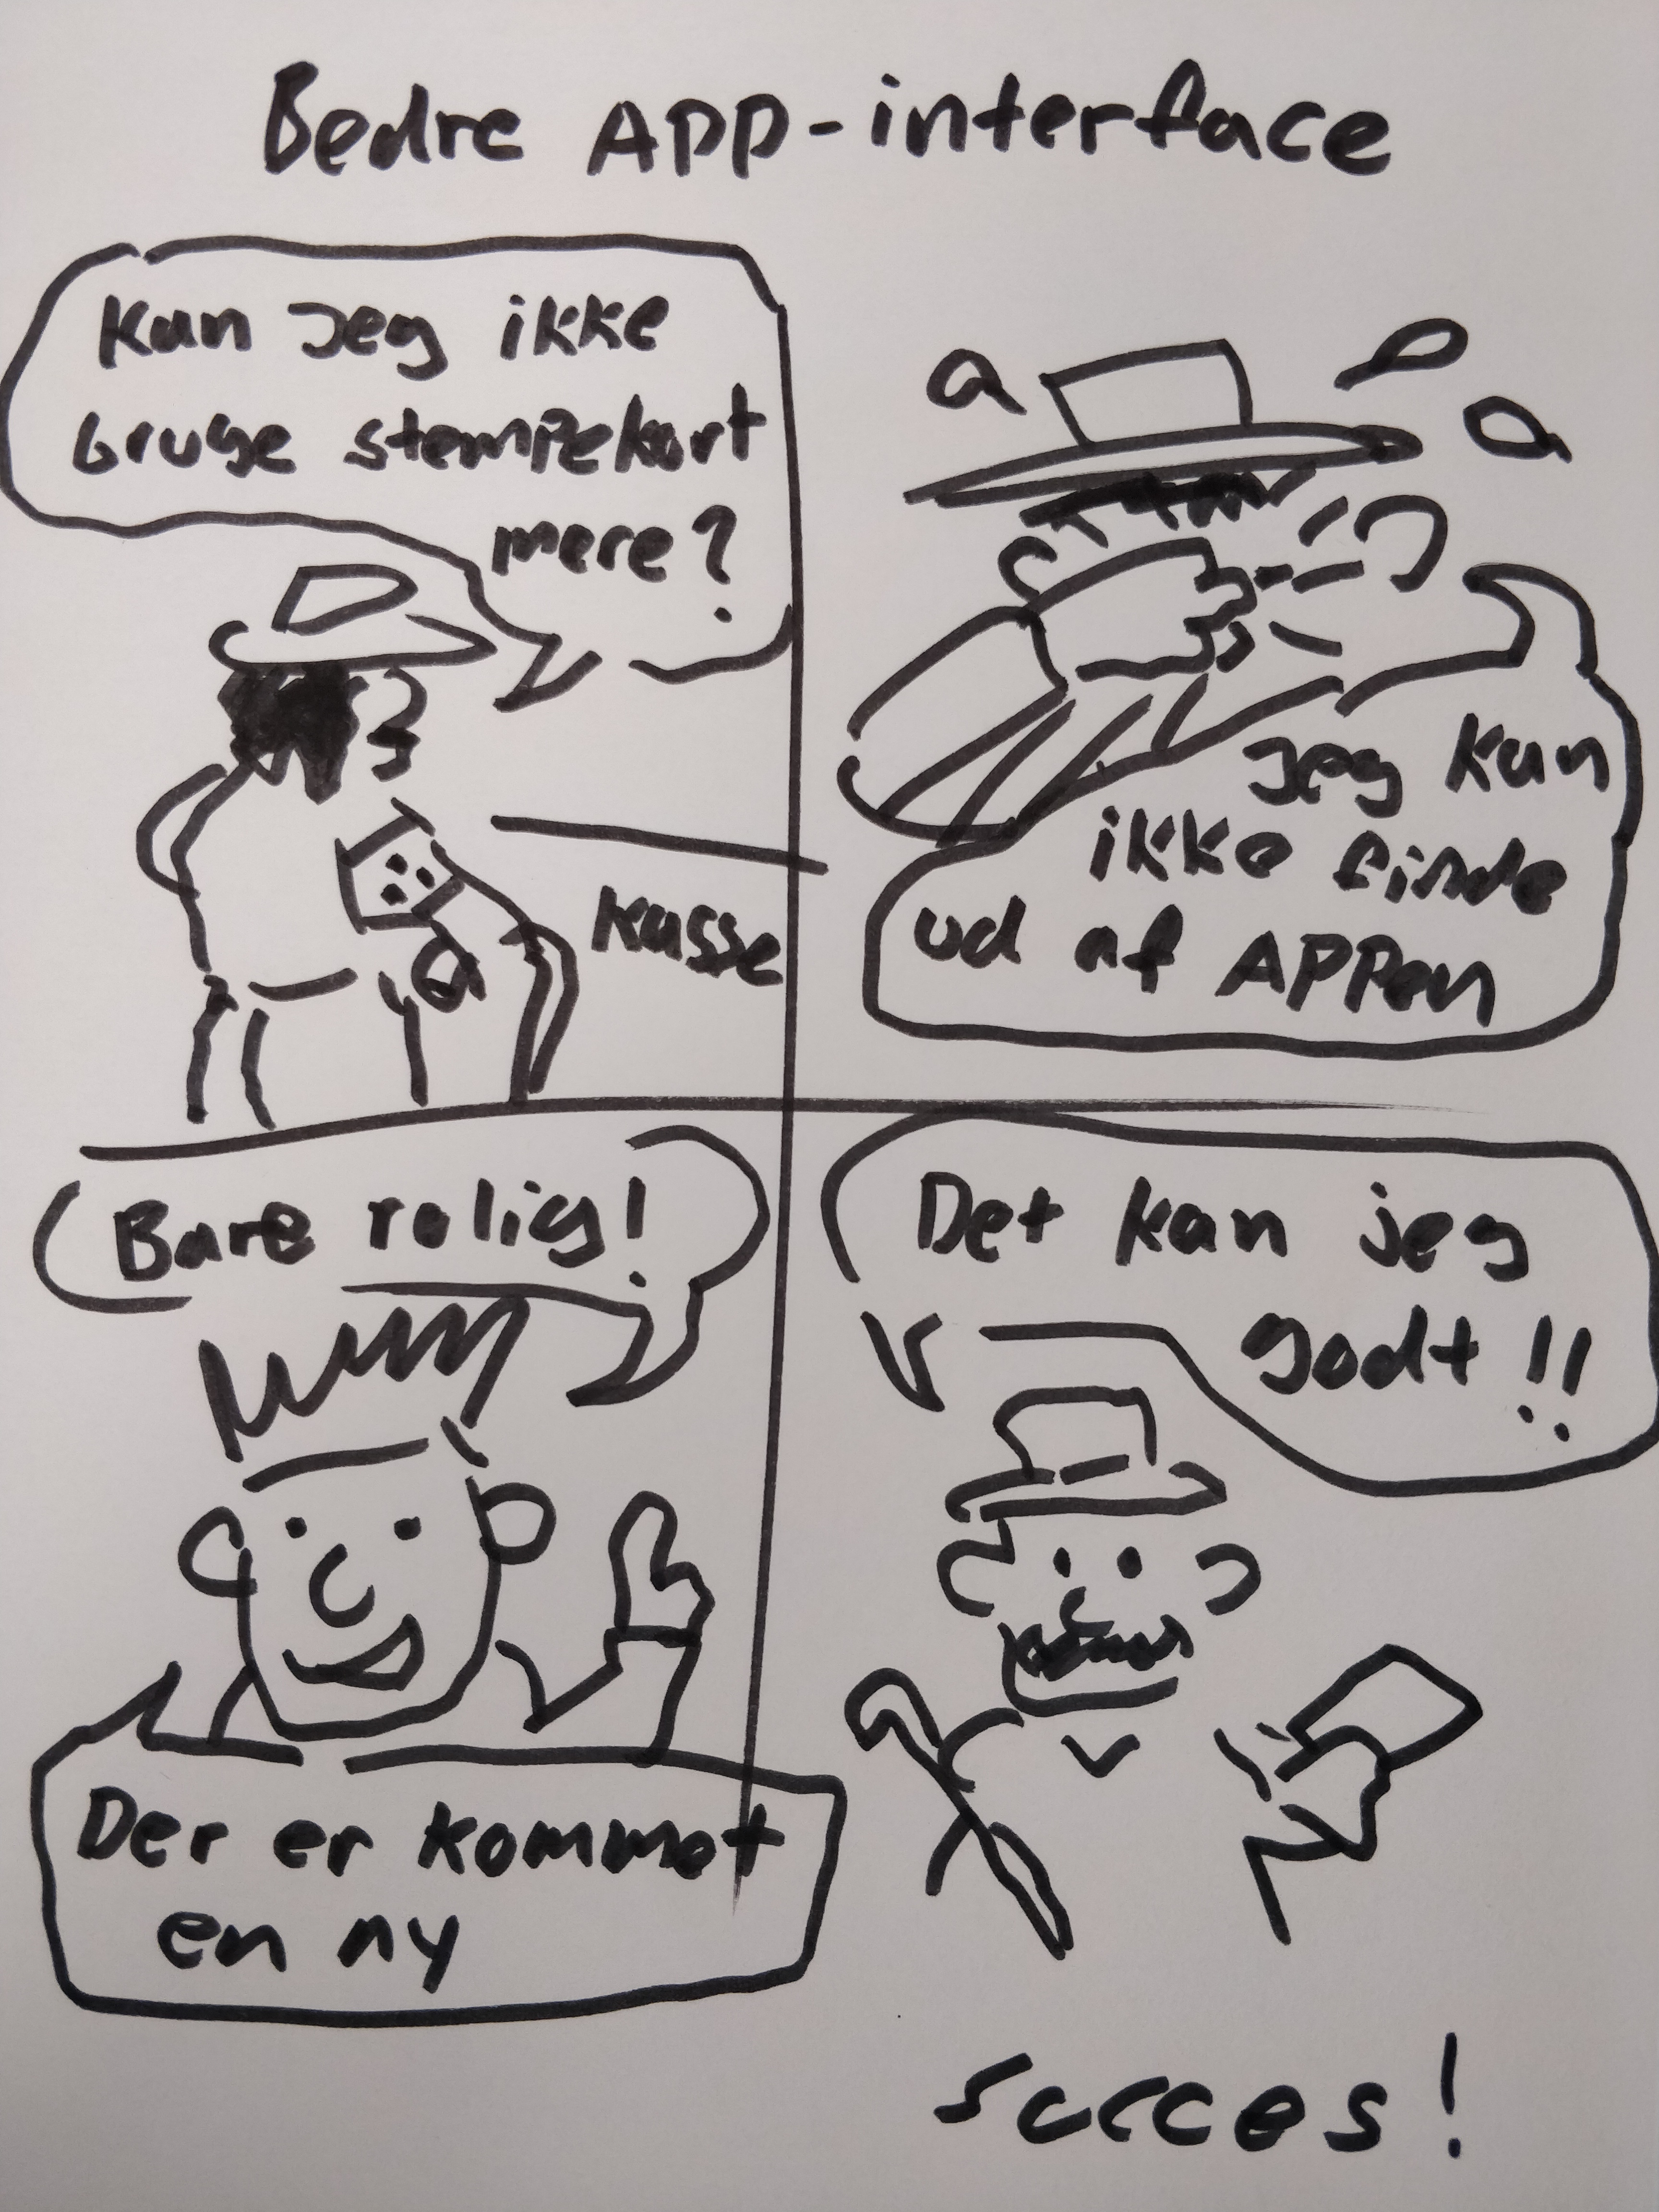 Bedre APP-interface
Kan Jeg ikke
bruge stempelkort
mere?
Kasse
Jeg kan
ikke finde
ud af APPen
Bare rolig!
Der er kommet
en ny
Det kan jeg
godt!!
succes!